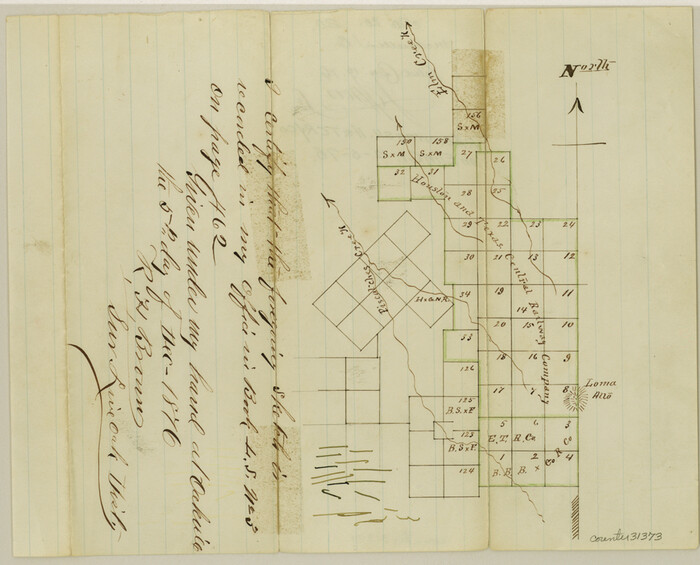 North
Elm Creek
156
S x M
150
158
S x M
S x M
27
26
32
31
28
25
Houston and Texas Central Railway Company
29
22
23
24
30
21
13
12
34
19
14
11
H & G N R
Piscatches Creek
20
15
10
33
18
16
9
126
17
7
8
Loma Alto
125
B. S. x F.
5
6
3
E. T. R. Co
123
B. S x F
1
2
4
B. B. B. x C. R. Co
124
I certify that the foregoing sketch is
recorded in my office in Book L. S. No 3
on page 462
Given under my hand at Oakville
the 5th day of Dec 1876
Sur Live Oak County
counter 31373